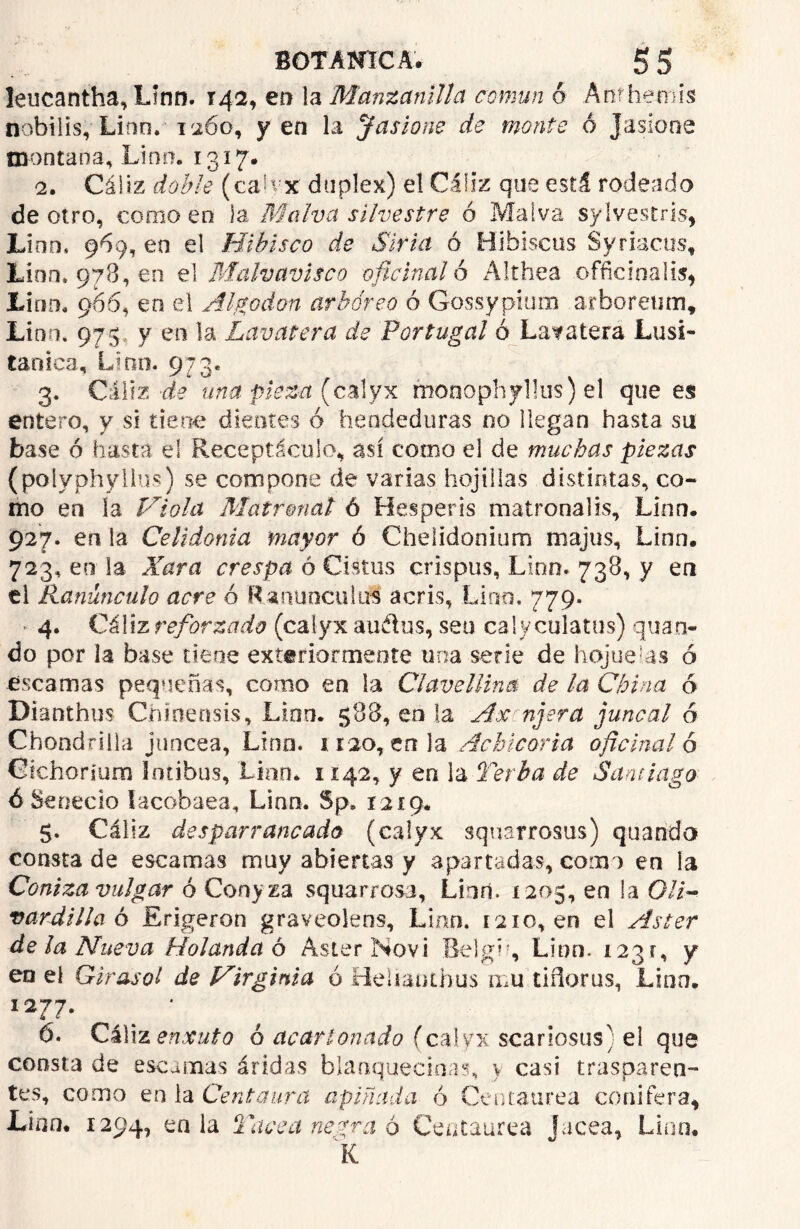 BOTANICA. 55
leucantha, Linn. 142, en la Manzanilla comun ó Anthemis
nobilis, Linn. 1260, y en la Jasione de monte ó Jasione
montana, Linn. 1317.
2. Cáliz doble (calyx duplex) el Cáliz que está rodeado
de otro, como en la Malva silvestre ó Malva sylvestris,
Linn. 969, en el Hibisco de Siria ó Hibiscus Syriacus,
Linn. 978, en el Malvavisco oficinal ó Althea officinalis,
Linn. 966, en el Algodon arbóreo ó Gossypium arboreum,
Linn. 975, y en la Lavatera de Portugal ó Lavatera Lusi-
tanica, Linn. 973.
3. Cáliz de una pieza (calyx monophyllus) el que es
entero, y si tiene dientes ó hendeduras no llegan hasta su
base ó hasta el Receptáculo, así como el de muchas piezas
(polyphyllus) se compone de varias hojillas distintas, co-
mo en la Viola Matronal ó Hesperis matronalis, Linn.
927. en la Celidonia mayor ó Chelidonium majus, Linn.
723, en la Xara crespa ó Cistus crispus, Linn. 738, y en
el Ranúnculo acre ó Ranunculus acris, Linn. 779.
4. Cáliz reforzado (calyx auctus, seu calyculatus) quan-
do por la base tiene exteriormente una serie de hojuelas ó
escamas pequeñas, como en la Clavellina de la China ó
Dianthus Chinensis, Linn. 588, en la Axonjera juncal ó
Chondrilla juncea, Linn. 1120, en la Achicoria oficinal ó
Cichorium Intibus, Linn. 1142, y en la Yerba de Santiago
ó Senecio Iacobaea, Linn. Sp. 1219.
5. Cáliz desparrancado (calyx squarrosus) quando
consta de escamas muy abiertas y apartadas, como en la
Coniza vulgar ó Conyza squarrosa, Linn. 1205, en la Oli-
vardilla ó Erigeron graveolens, Linn. 1210, en el Aster
de la Nueva Holanda ó Aster Novi Belgii, Linn. 1231, y
en el Girasol de Virginia ó Helianthus multiflorus, Linn.
1277.
6. Cáliz enxuto ó acartonado (calyx scariosus) el que
consta de escamas áridas blanquecinas, y casi trasparen-
tes, como en la Centaura apiñada ó Centaurea conifera,
Linn. 1294, en la Yacea negra ó Centaurea Jacea, Linn.
K